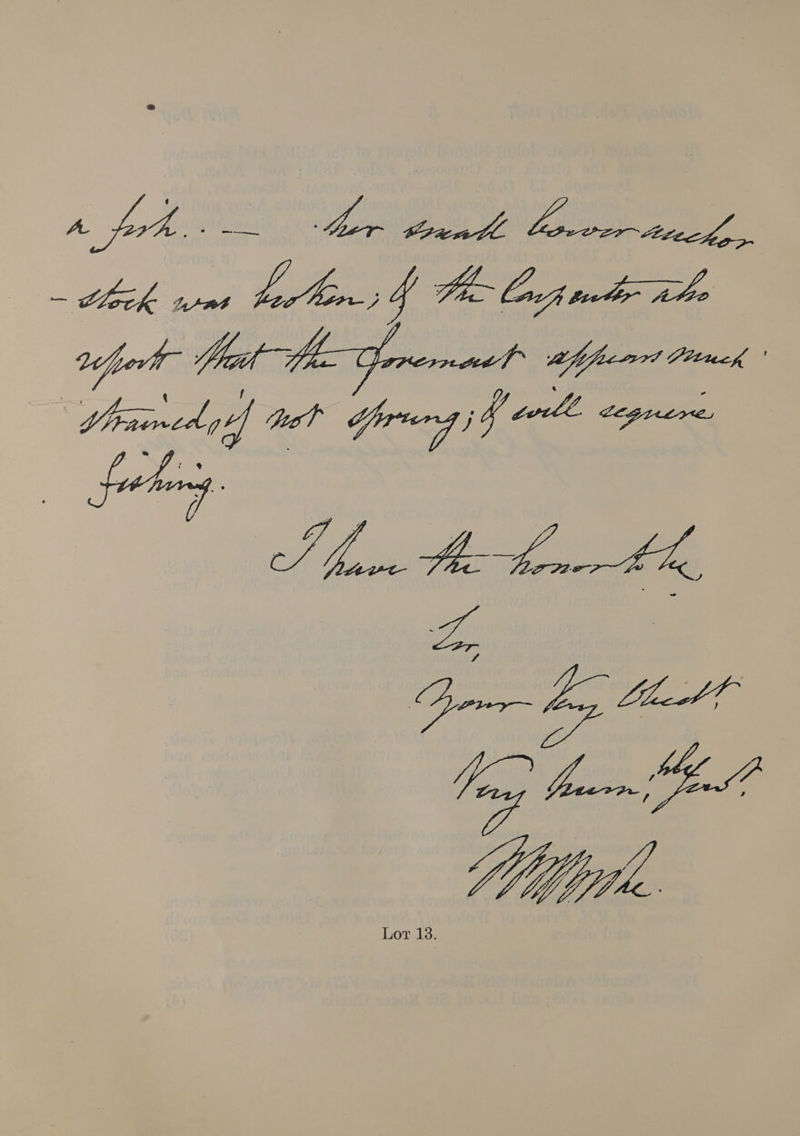 a fish. . — her small bower anchor
- stock was broken; & the Carpenter also
reports that the foremast appears much
strained, if not sprung; & will require
fishing.
I have the honor to be,
Sir,
Your Very Obedt
Very hum, ble Servt.
Lot 13.